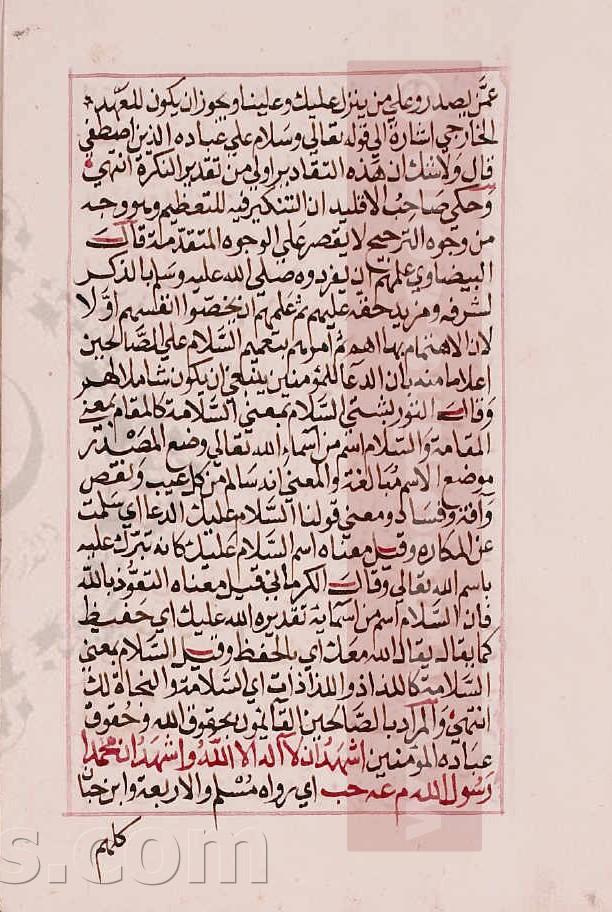 عمن يصدر وعلى من ينزل عليك وعلينا ويجوز ان يكون للعهد
الخارجي اشارة الى قوله تعالى وسلام علي عباده الذين اصطفي
قال ولا شك ان هذه التقادير اولي من تقدير النكرة انتهي
وحكي صاحب الاقليد ان التنكير فيه للتعظيم وهو وجه
من وجوه الترجيح لا يقصر علي الوجوه المتقدمة قال
البيضاوي علمهم ان يفردوه صلى الله عليه وسلم بالذكر
لشرفه ومزيد حقه عليهم ثم علمهم ان يخصوا انفسهم اولا
لان الاهتمام بها اهم ثم امرهم بتعميم السلام علي الصالحين
اعلاما منه بان الدعا للمؤمنين ينبغي ان يكون شاملا لهم
وقال التوربشتي السلام بمعني السلامة كالمقام بمعني
المقامة والسلام اسم من اسماء الله تعالي وضع المصدر
موضع الاسم مبالغة والمعني انه سالم من كل عيب ونقص
وآفة وفساد ومعني قولنا السلام عليك الدعا اي سلمت
عن المكاره وقيل معناه اسم السلام عليك كانه تبرك عليه
باسم الله تعالي وقال الكرماني قيل معناه التعوذ بالله
فان السلام اسم من اسمايه تقديره الله عليك اي حفيظ
كما يقال الله معك اي بالحفظ وقيل السلام بمعني
السلامة كاللذاذ واللذاذات اي السلامة والنجاة لك
انتهي والمراد بالصالحين القايمون بحقوق الله وحقوق
عباده المؤمنين اشهد ان لا اله الا الله واشهد ان محمدا
رسول الله م عه حب اي رواه مسلم والاربعة وابن حبان
كلهم
s.com